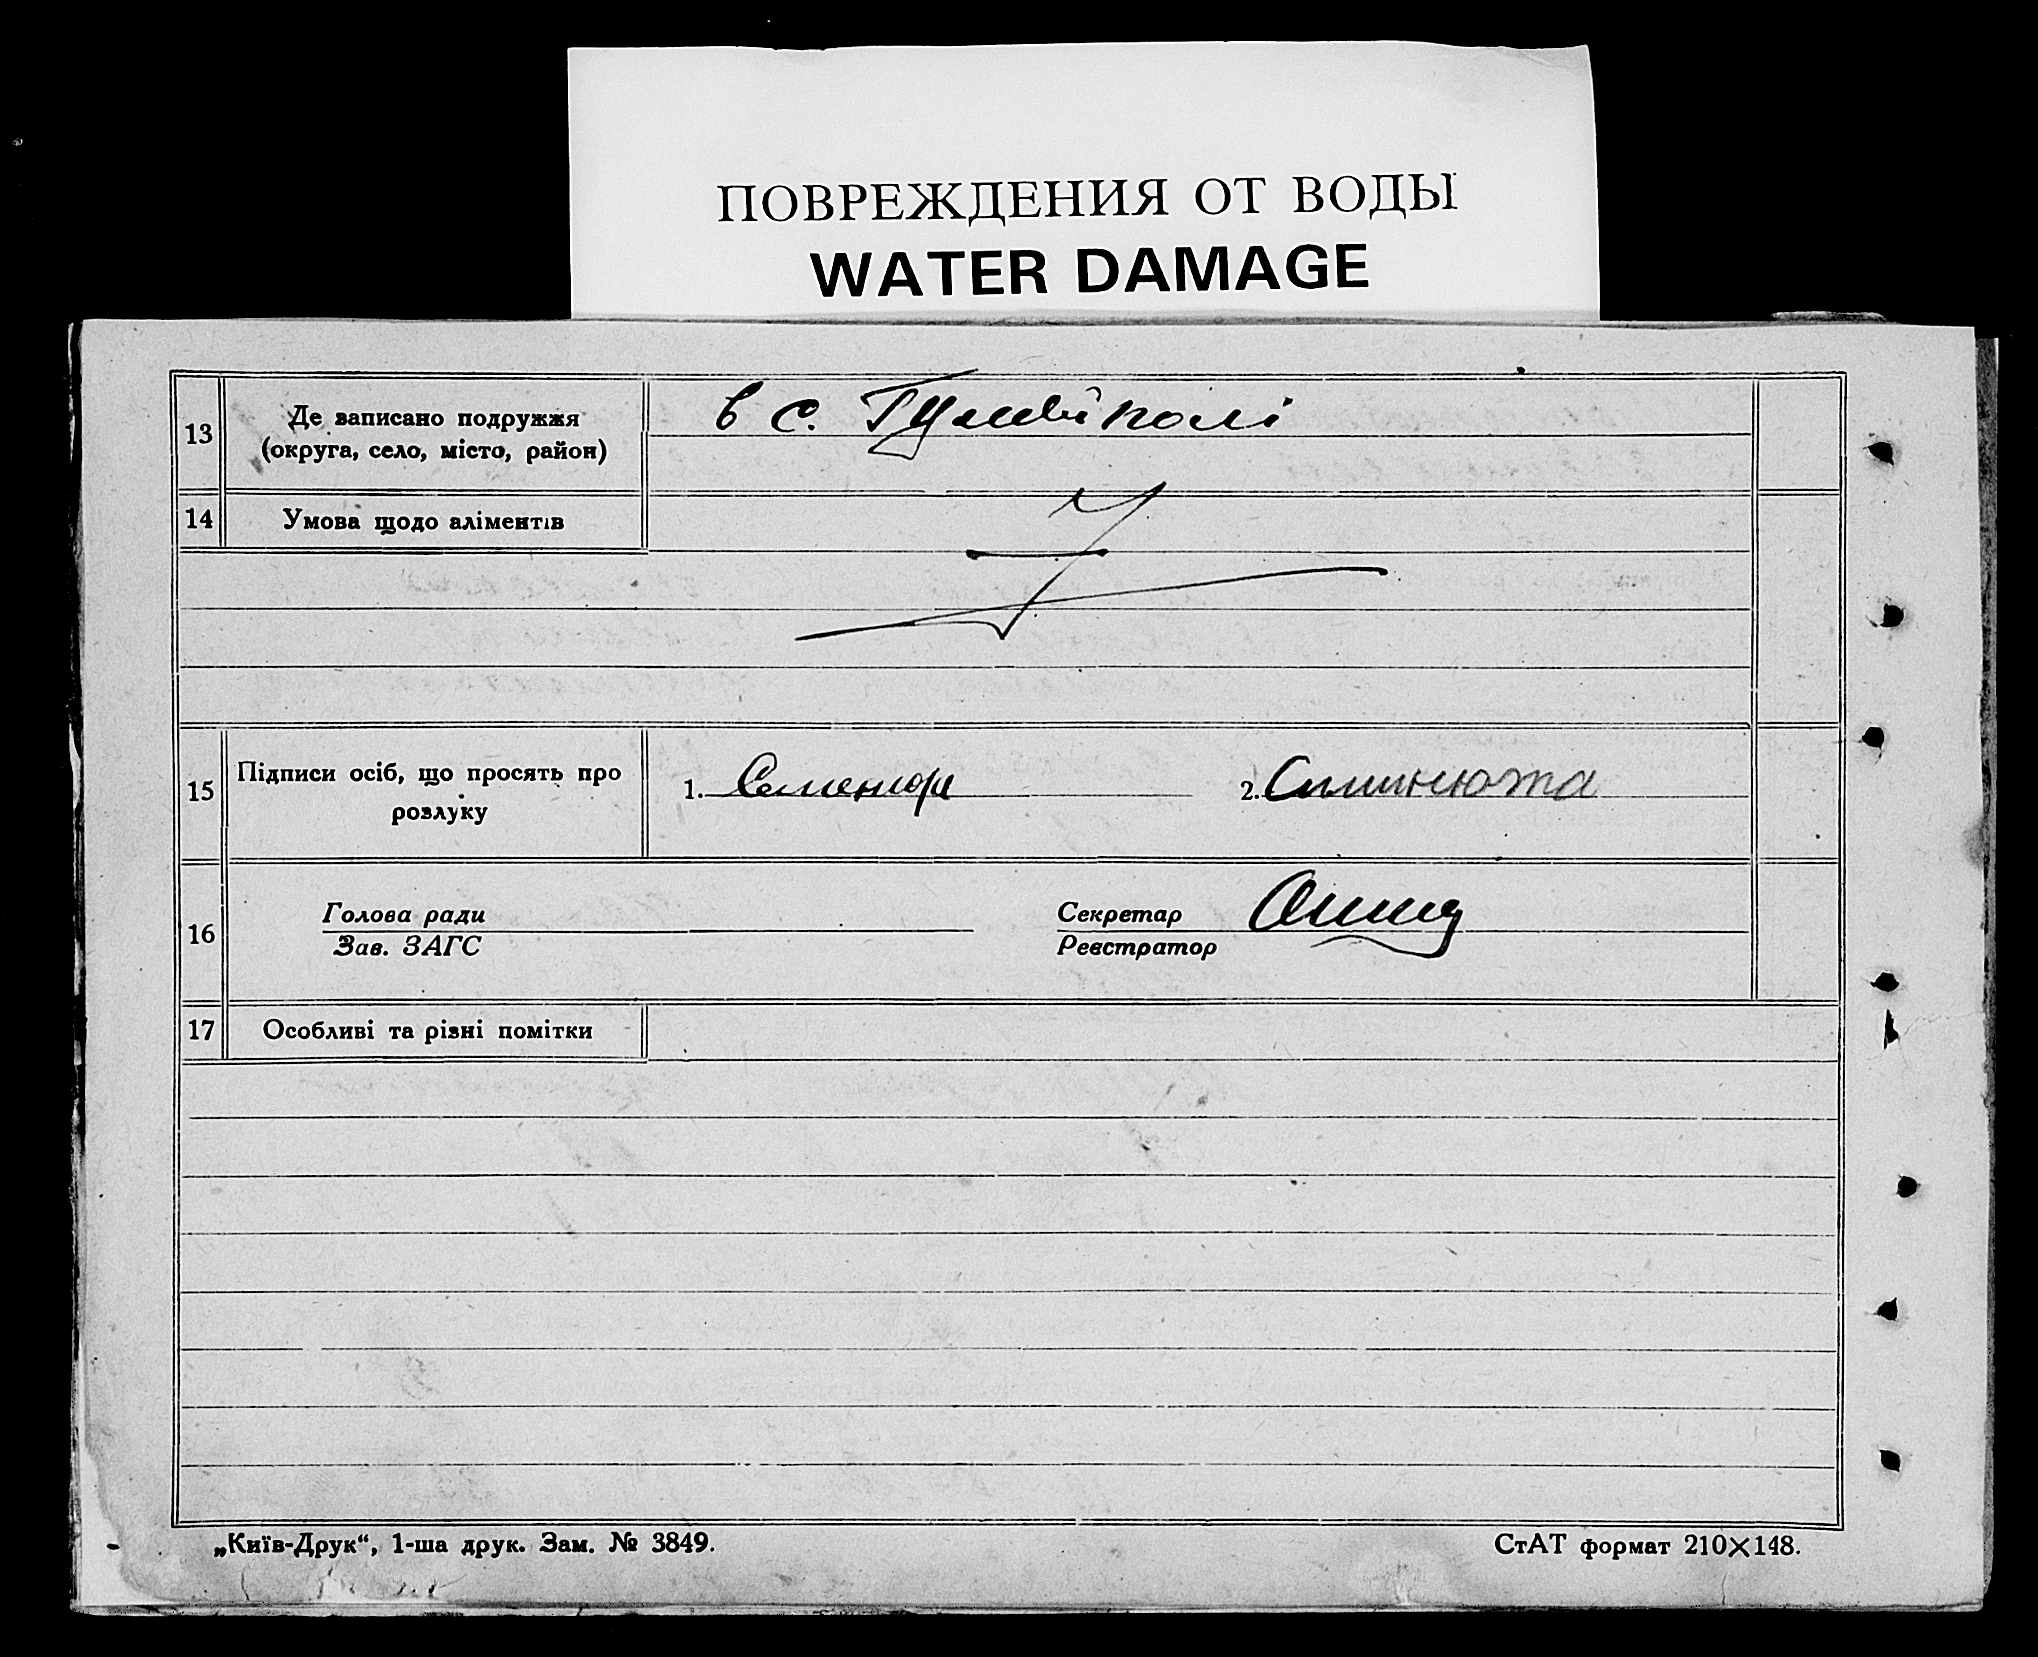 ПОВРЕЖДЕНИЯ ОТ ВОДЫ
WATER DAMAGE
13
Де записано подружжя
(округа, село, місто, район)
в с. Гуляйполі
14
Умова щодо аліментів
15
Підписи осіб, що просять про
розлуку
1.
2.
16
Голова ради
Зав. ЗАГС
Секретар
Реєстратор
17
Особливі та різні помітки
„Київ-Друк“, 1-ша друк. Зам. № 3849.
СтАТ формат 210×148.